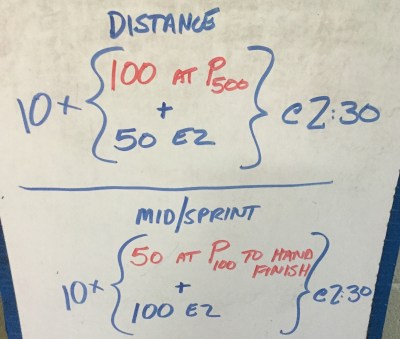 DISTANCE
10x { 100 AT P500
+
50 EZ } @ 2:30
MID/SPRINT
10x { 50 AT P100 TO HAND
FINISH
+
100 EZ } @ 2:30